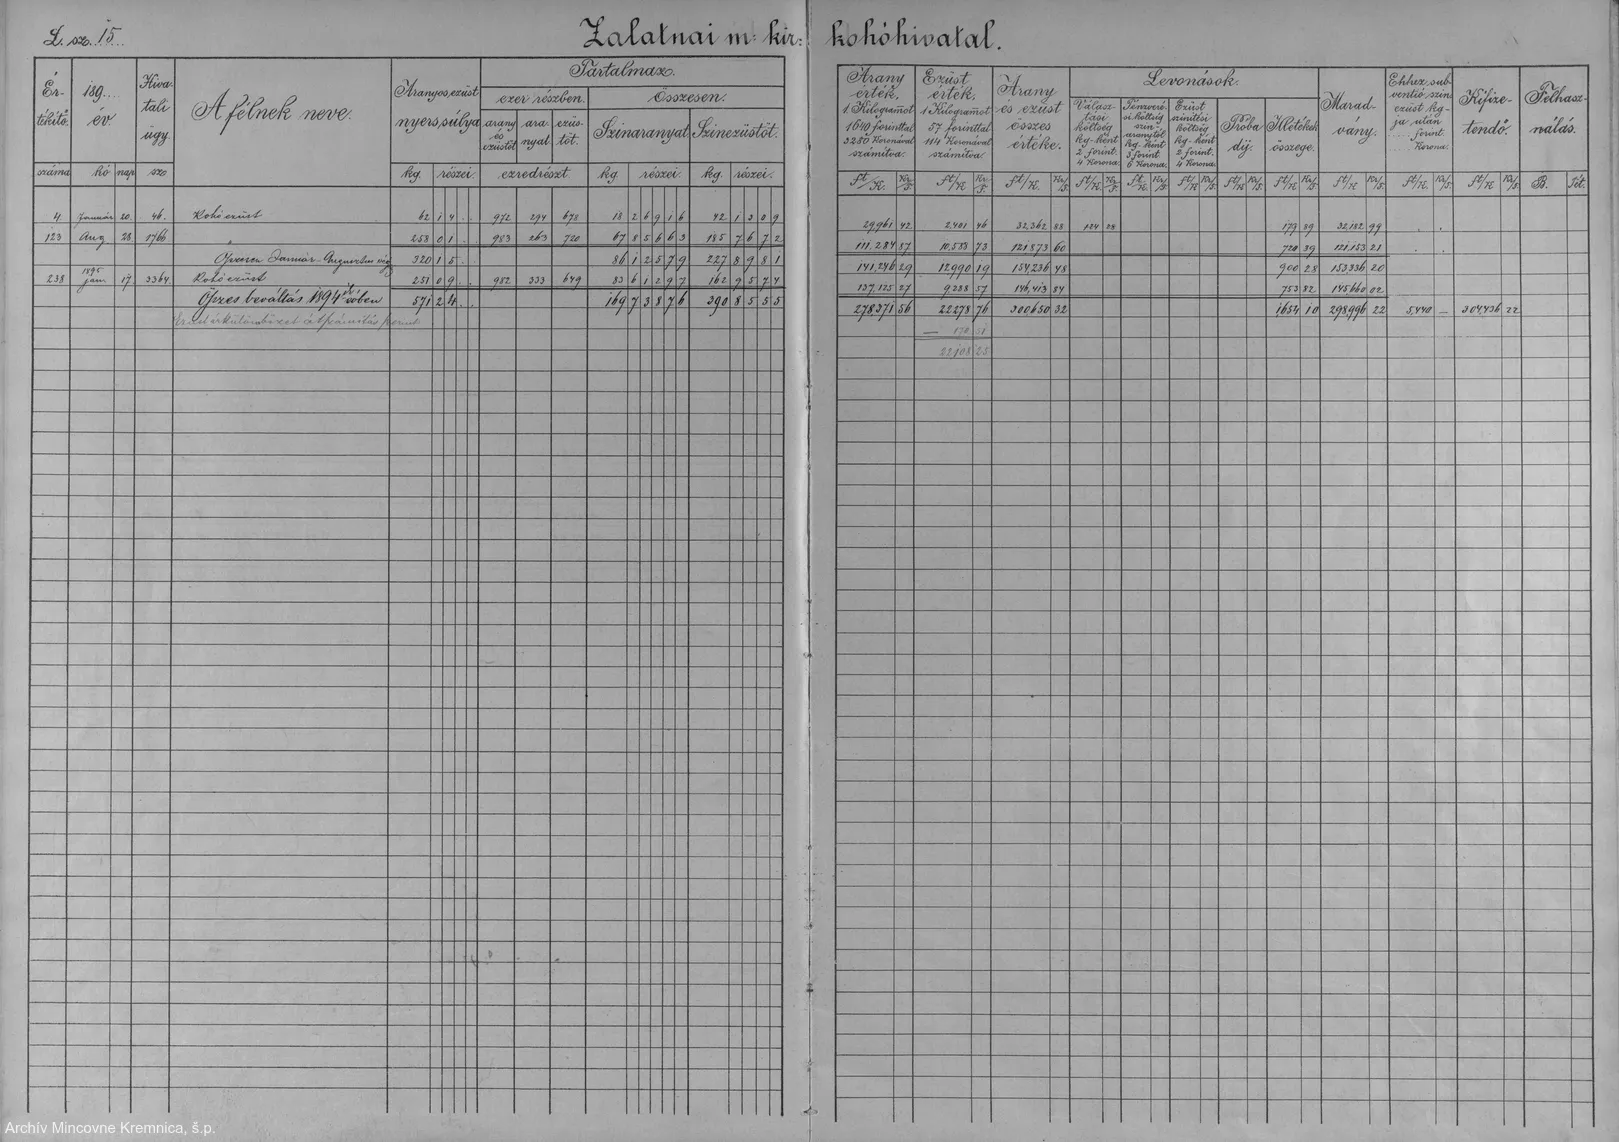 L. sz. 15
Zalatnai m. kir. kohóhivatal.
Értékitő száma
189.... év
hó nap
Hivatali ügy. szo
A félnek neve.
Aranyos ezüst nyers súlya
kg. részei.
Tartalmaz.
ezer részben.
arany és ezüstöt
aranyat
ezüstöt.
ezredrészt
Összesen.
Szinaranyat
kg részei.
Szinezüstöt.
kg. részei.
4 Január 20. 46. Kohó ezüst 62 1 4 972 294 678 18 2 6 9 1 6 42 1 3 0 9
123 Aug 28 1766 " 258 0 1 983 263 720 67 8 5 6 6 3 185 7 6 7 2
Összesen Január-Augusztus 320 1 5 86 1 2 5 7 9 227 8 9 8 1
238 1895 jan. 17 3364 Kohó ezüst 251 0 9 982 333 649 83 6 1 2 9 7 162 9 5 7 4
Öszes beváltás 1894 évben 571 2 4 169 7 3 8 7 6 390 8 5 5 5
Arany érték. 1 Kilogramot 1640 forinttal 3280 Koronával számitva.
Ezüst érték. 1 Kilogramot 57 forinttal 114 Koronával számitva
Arany és ezüst összes értéke.
Levonások.
Válasz-tási költség kg-ként 2 forint. 4 Korona.
Ezüst szinitési költség kg-ként 2 forint. 4 Korona.
Próba díj.
Illetékek összege.
Marad-vány.
Ehhez sub-ventió szin ezüst kg-ja után .... forint .... Korona.
Kifize-tendő.
Felhasz-nálás.
ft/K. Kr/f. B. Tét.
29961 42 2401 46 32,362 88 124 28 179 89 32,182 99
111,284 87 10,588 73 121,873 60 720 39 121,153 21
141,246 29 12990 19 154,236 48 900 28 153336 20
137,125 27 9288 57 146,413 84 753 82 145660 02
278,371 56 22278 76 300650 32 1654 10 298,996 22 5,440 — 304,436 22
— 170 51
22108 25
Archív Mincovne Kremnica, š.p.